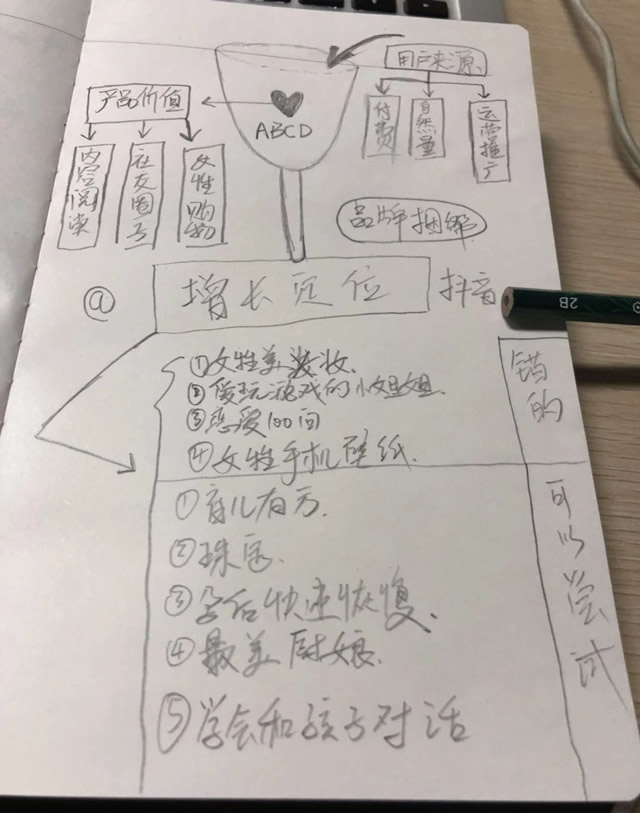 用户来源
产品价值
付费
自然量
运营推广
ABCD
内容阅读
社交圈子
女性购物
品牌捆绑
@
增长定位
抖音
2B
①女性美妆
②爱玩游戏的小姐姐
③恋爱100问
④女性手机壁纸.
错的
①育儿有方.
②珠宝.
③孕后快速恢复.
④最美厨娘.
⑤学会和孩子对话
可以尝试